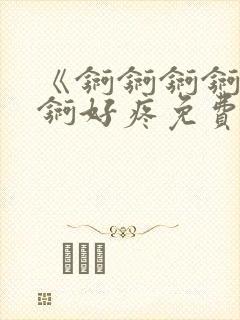 《锕锕锕锕
锕好疼免費